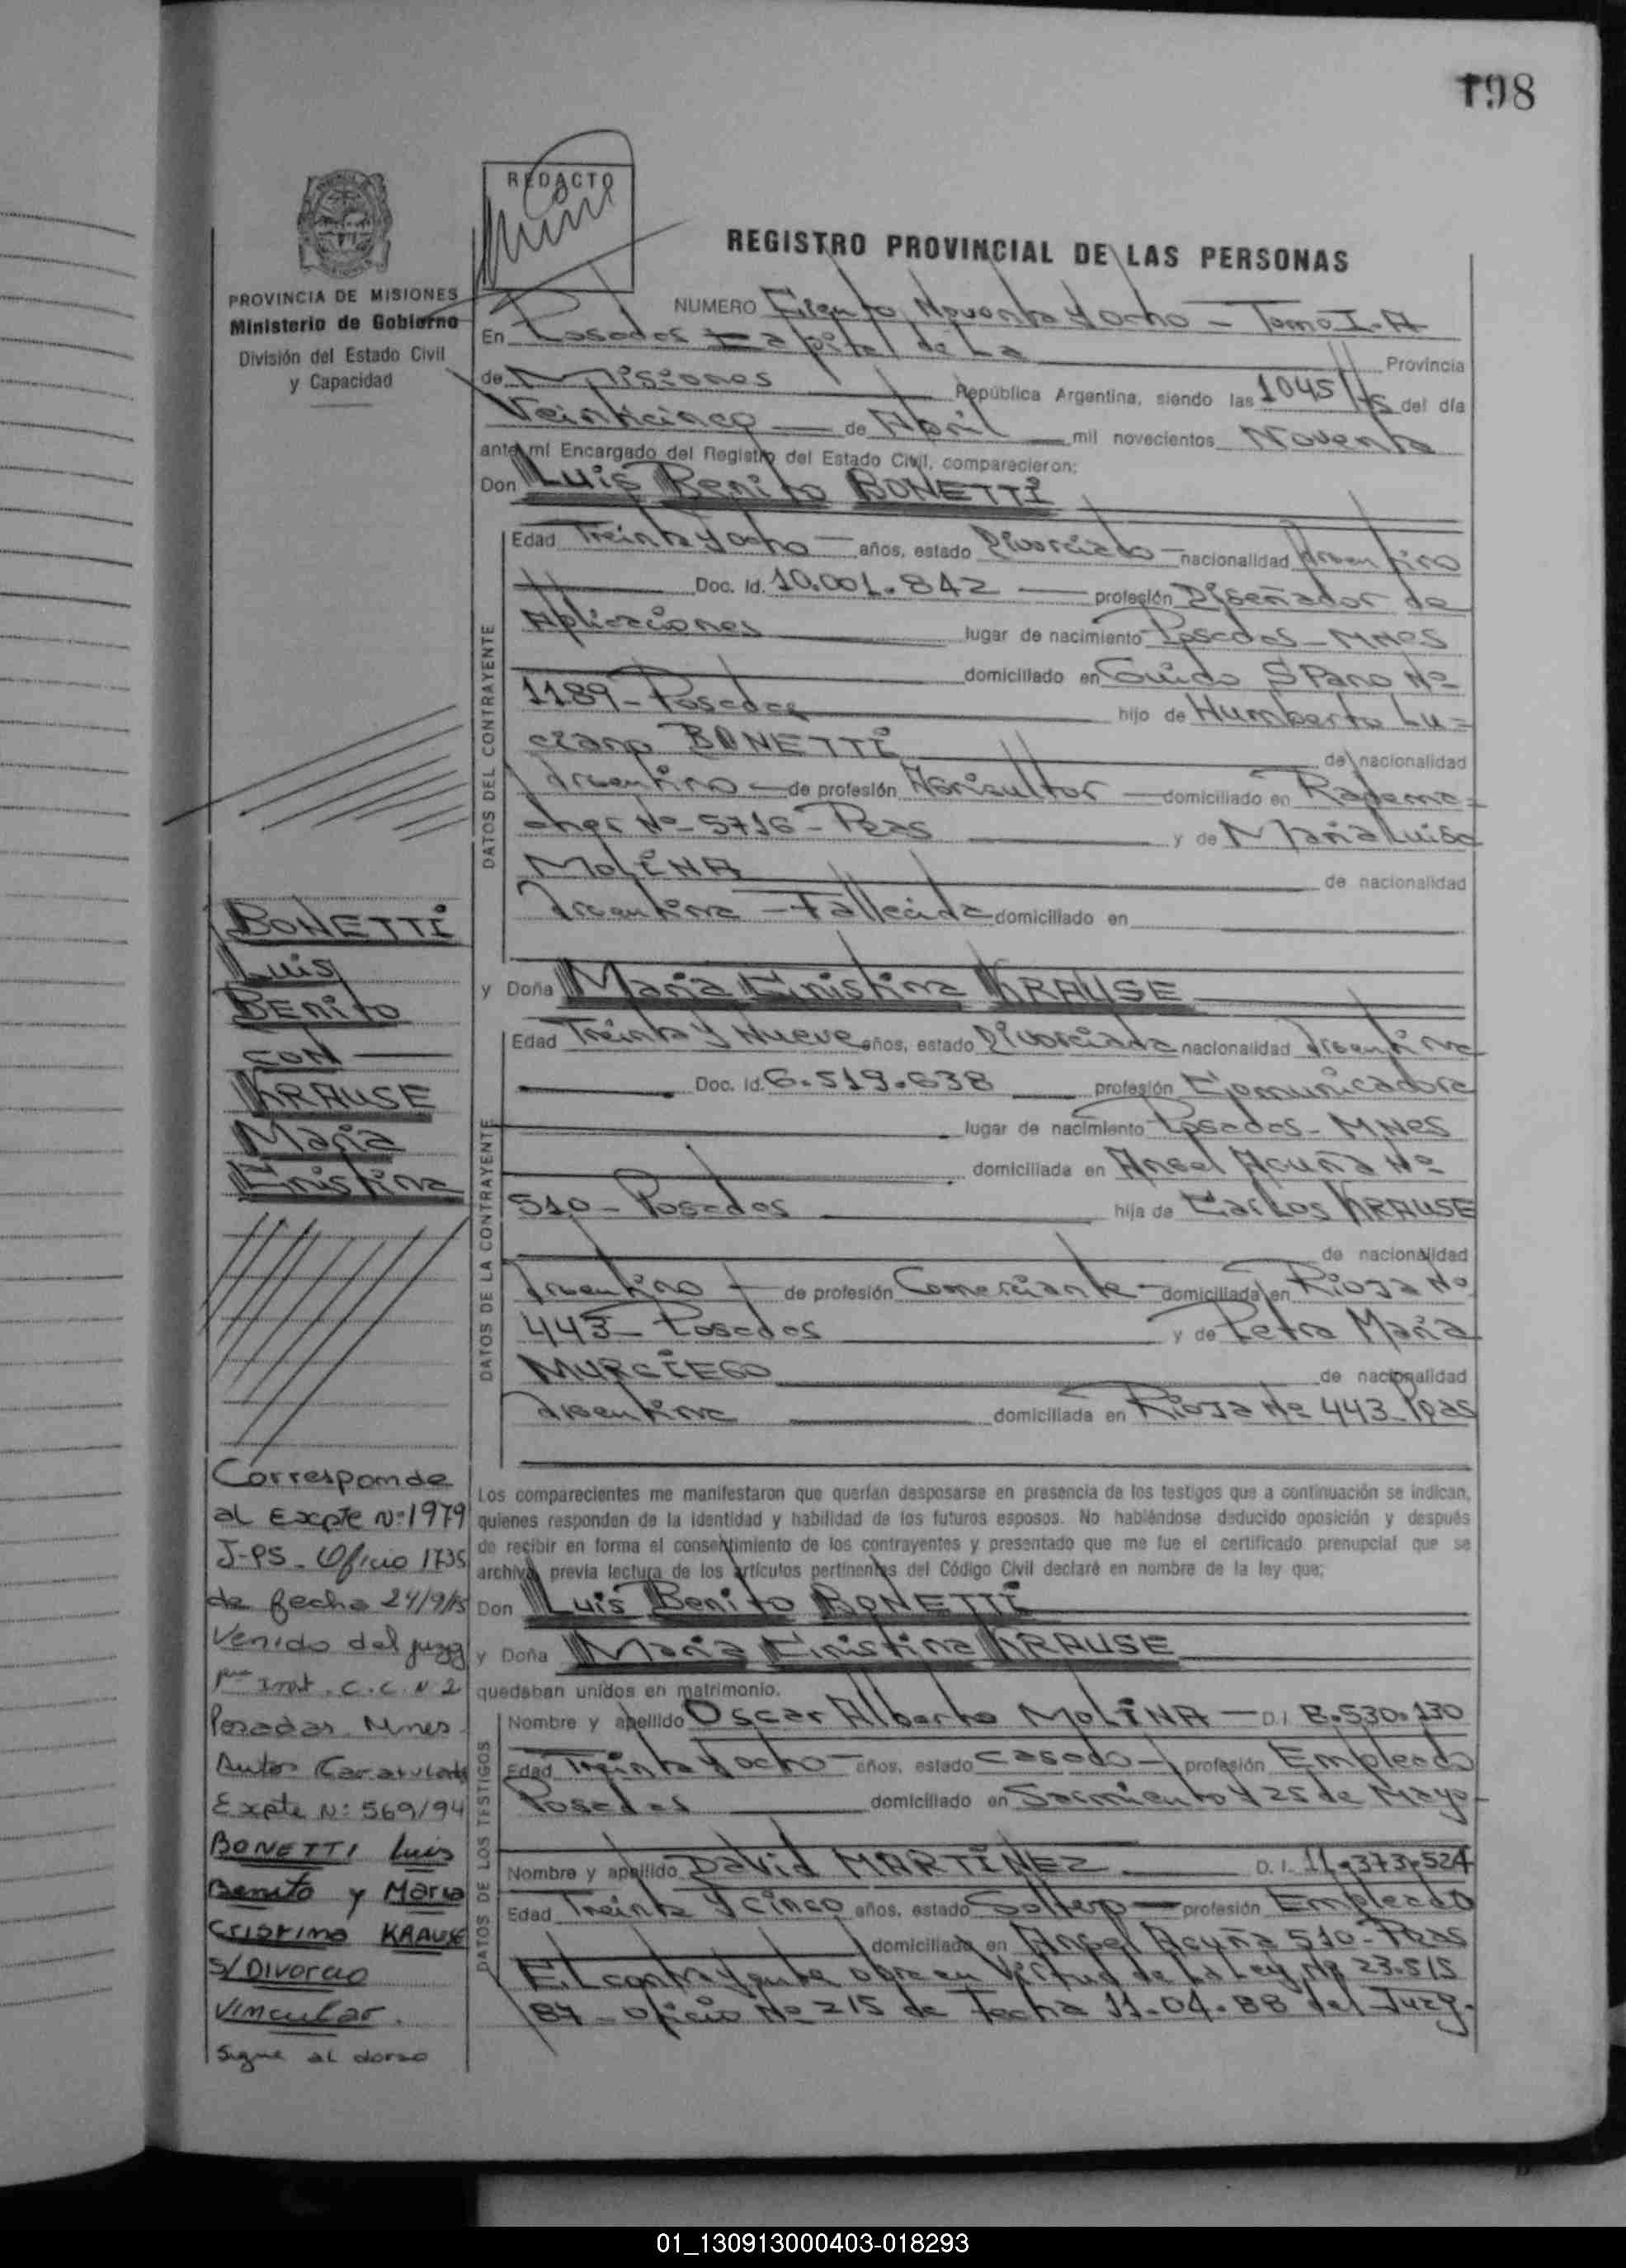 198
REDACTO
REGISTRO PROVINCIAL DE LAS PERSONAS
PROVINCIA DE MISIONES
Ministerio de Gobierno
División del Estado Civil
y Capacidad
NUMERO Ciento Noventa y ocho - Tomo I-A
En Posadas Capital de La Provincia
de Misiones República Argentina, siendo las 1045 Hs del día
Veinticinco de Abril mil novecientos Noventa
ante mí Encargado del Registro del Estado Civil, comparecieron:
Don Luis Benito BONETTI
DATOS DEL CONTRAYENTE
Edad Treinta y ocho años, estado Divorciado nacionalidad Argentino
Doc. Id. 10.001.842 profesión Diseñador de
Aplicaciones lugar de nacimiento Posadas - MNES
domiciliado en Guido SPano Nº
1189 - Posadas hijo de Humberto Lu=
ciano BONETTI de nacionalidad
Argentino de profesión Agricultor domiciliado en Radema=
cher Nº 5716 - Pdas y de María Luisa
MOLINA de nacionalidad
Argentina - Fallecida domiciliado en
y Doña María Cristina KRAUSE
DATOS DE LA CONTRAYENTE
Edad Treinta y Nueve años, estado Divorciada nacionalidad Argentina
Doc. Id. 6.519.638 profesión Comunicadora
lugar de nacimiento Posadas - MNES
domiciliada en Angel Acuña Nº
510 - Posadas hija de Carlos KRAUSE
de nacionalidad
Argentino de profesión Comerciante domiciliada en Rioja Nº
443 - Posadas y de Petra María
MURCIEGO de nacionalidad
Argentina domiciliada en Rioja Nº 443 - Pdas
Los comparecientes me manifestaron que querían desposarse en presencia de los testigos que a continuación se indican,
quienes responden de la identidad y habilidad de los futuros esposos. No habiéndose deducido oposición y después
de recibir en forma el consentimiento de los contrayentes y presentado que me fue el certificado prenupcial que se
archiva previa lectura de los artículos pertinentes del Código Civil declaré en nombre de la ley que;
Don Luis Benito BONETTI
y Doña María Cristina KRAUSE
quedaban unidos en matrimonio.
DATOS DE LOS TESTIGOS
Nombre y apellido Oscar Alberto MOLINA D.I. 8.530.130
Edad Treinta y ocho años, estado casado profesión Empleado
Posadas domiciliado en Sarmiento y 25 de Mayo
Nombre y apellido David MARTINEZ D.I. 11.373.524
Edad Treinta y cinco años, estado Soltero profesión Empleado
domiciliado en Angel Acuña 510 - Pdas
El contrayente obra en Virtud de La Ley Nº 23.515
/87 - Oficio Nº 215 de fecha 11-04-88 del Juzg.
BONETTI
Luis
BENITO
CON
KRAUSE
María
Cristina
Corresponde
al Expte Nº 1979
J-PS - Oficio 1735
de fecha 24/9/15
Venido del juzg
1ra Inst. C.C. Nº 2
Posadas Mnes
Autos Caratulado
Expte Nº: 569/94
BONETTI Luis
Benito y María
Cristina KRAUSE
S/ Divorcio
Vincular.
Sigue al dorso
01_130913000403-018293